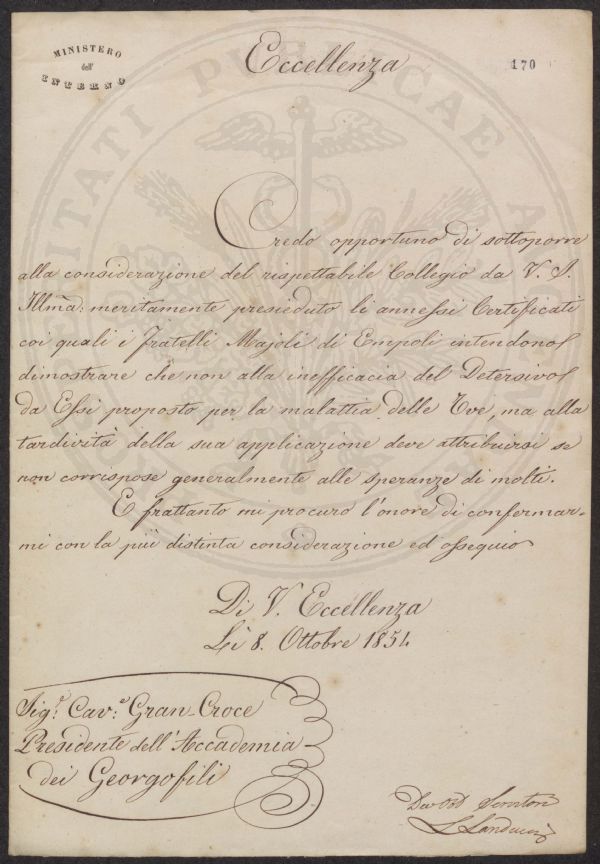 MINISTERO
dell'
INTERNO
Eccellenza
170
Credo opportuno di sottoporre
alla considerazione del rispettabile Collegio da V. S.
Illm̃a: meritamente presieduto li annessi Certificati
coi quali i Fratelli Majoli di Empoli intendono
dimostrare che non alla inefficacia del Detersivo
da Essi proposto per la malattia delle Uve, ma alla
tardività della sua applicazione deve attribuirsi se
non corrispose generalmente alle speranze di molti.
E frattanto mi procuro l'onore di confermar=
mi con la più distinta considerazione ed ossequio
Di V. Eccellenza
Li 8. Ottobre 1854
Sigr. Cav.e Gran-Croce
Presidente dell'Accademia
dei Georgofili
Dev Obb Servitore
L Landucci